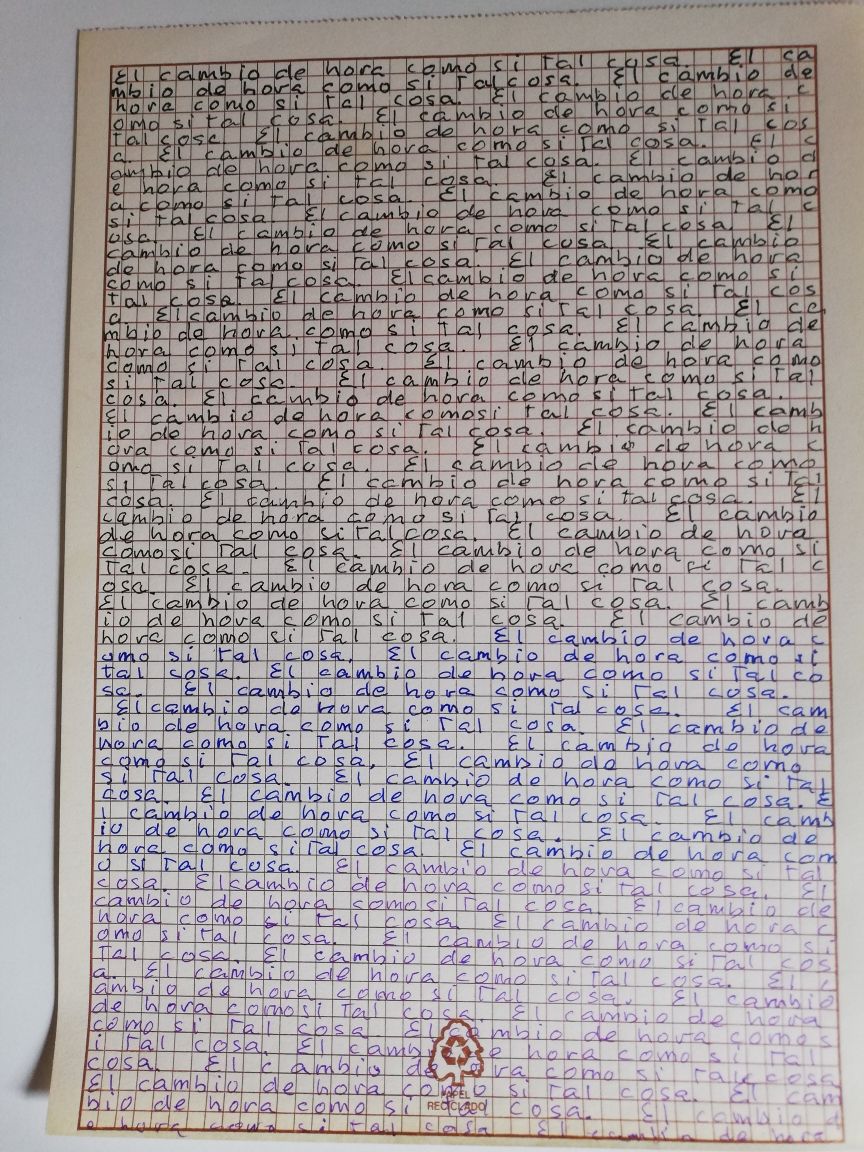 El cambio de hora como si tal cosa. El ca
mbio de hora como si tal cosa. El cambio de
hora como si tal cosa. El cambio de hora c
omo si tal cosa. El cambio de hora como si
tal cosa. El cambio de hora como si tal cos
a. El cambio de hora como si tal cosa. El c
ambio de hora como si tal cosa. El cambio d
e hora como si tal cosa. El cambio de hor
a como si tal cosa. El cambio de hora como
si tal cosa. El cambio de hora como si tal c
osa. El cambio de hora como si tal cosa. El
cambio de hora como si tal cosa. El cambio
de hora como si tal cosa. El cambio de hora
como si tal cosa. El cambio de hora como si
tal cosa. El cambio de hora como si tal cos
a. El cambio de hora como si tal cosa. El ca
mbio de hora como si tal cosa. El cambio de
hora como si tal cosa. El cambio de hora
como si tal cosa. El cambio de hora como
si tal cosa. El cambio de hora como si tal
cosa. El cambio de hora como si tal cosa.
El cambio de hora como si tal cosa. El camb
io de hora como si tal cosa. El cambio de h
ora como si tal cosa. El cambio de hora c
omo si tal cosa. El cambio de hora como
si tal cosa. El cambio de hora como si tal
cosa. El cambio de hora como si tal cosa. El
cambio de hora como si tal cosa. El cambio
de hora como si tal cosa. El cambio de hora
como si tal cosa. El cambio de hora como si
tal cosa. El cambio de hora como si tal c
osa. El cambio de hora como si tal cosa.
El cambio de hora como si tal cosa. El camb
io de hora como si tal cosa. El cambio de
hora como si tal cosa. El cambio de hora c
omo si tal cosa. El cambio de hora como si
tal cosa. El cambio de hora como si tal co
sa. El cambio de hora como si tal cosa.
El cambio de hora como si tal cosa. El cam
bio de hora como si tal cosa. El cambio de
hora como si tal cosa. El cambio de hora
como si tal cosa. El cambio de hora como
si tal cosa. El cambio de hora como si tal
cosa. El cambio de hora como si tal cosa. E
l cambio de hora como si tal cosa. El camb
io de hora como si tal cosa. El cambio de
hora como si tal cosa. El cambio de hora com
o si tal cosa. El cambio de hora como si tal
cosa. El cambio de hora como si tal cosa. El
cambio de hora como si tal cosa. El cambio de
hora como si tal cosa. El cambio de hora c
omo si tal cosa. El cambio de hora como si
tal cosa. El cambio de hora como si tal cos
a. El cambio de hora como si tal cosa. El c
ambio de hora como si tal cosa. El cambio
de hora como si tal cosa. El cambio de hora
como si tal cosa El cambio de hora como s
i tal cosa. El camb e hora como si tal
cosa. El cambio de ora como si tal cosa
El cambio de hora como si tal cosa. El cam
bio de hora como si tal cosa. El cambio d
e hora como si tal cosa El cambio de hora
PAPEL
RECICLADO